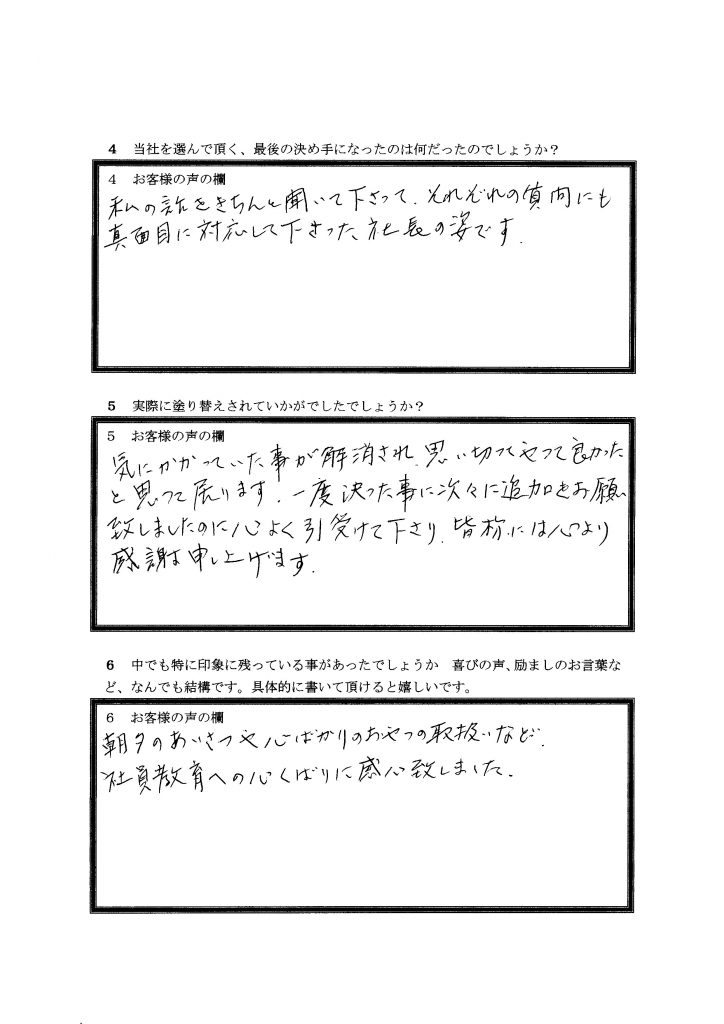 4 当社を選んで頂く、最後の決め手になったのは何だったのでしょうか？
4 お客様の声の欄
私の話をきちんと聞いて下さって、それぞれの質問にも
真面目に対応して下さった、社長の姿です.
5 実際に塗り替えされていかがでしたでしょうか？
5 お客様の声の欄
気にかかっていた事が解消され、思い切ってやって良かった
と思って居ります. 一度決った事に次々に追加をお願い
致しましたのに心よく引受けて下さり、皆様には心より
感謝申し上げます.
6 中でも特に印象に残っている事があったでしょうか 喜びの声、励ましのお言葉な
ど、なんでも結構です。具体的に書いて頂けると嬉しいです。
6 お客様の声の欄
朝夕のあいさつや心ばかりのおやつの取扱いなど、
社員教育への心くばりに感心致しました.